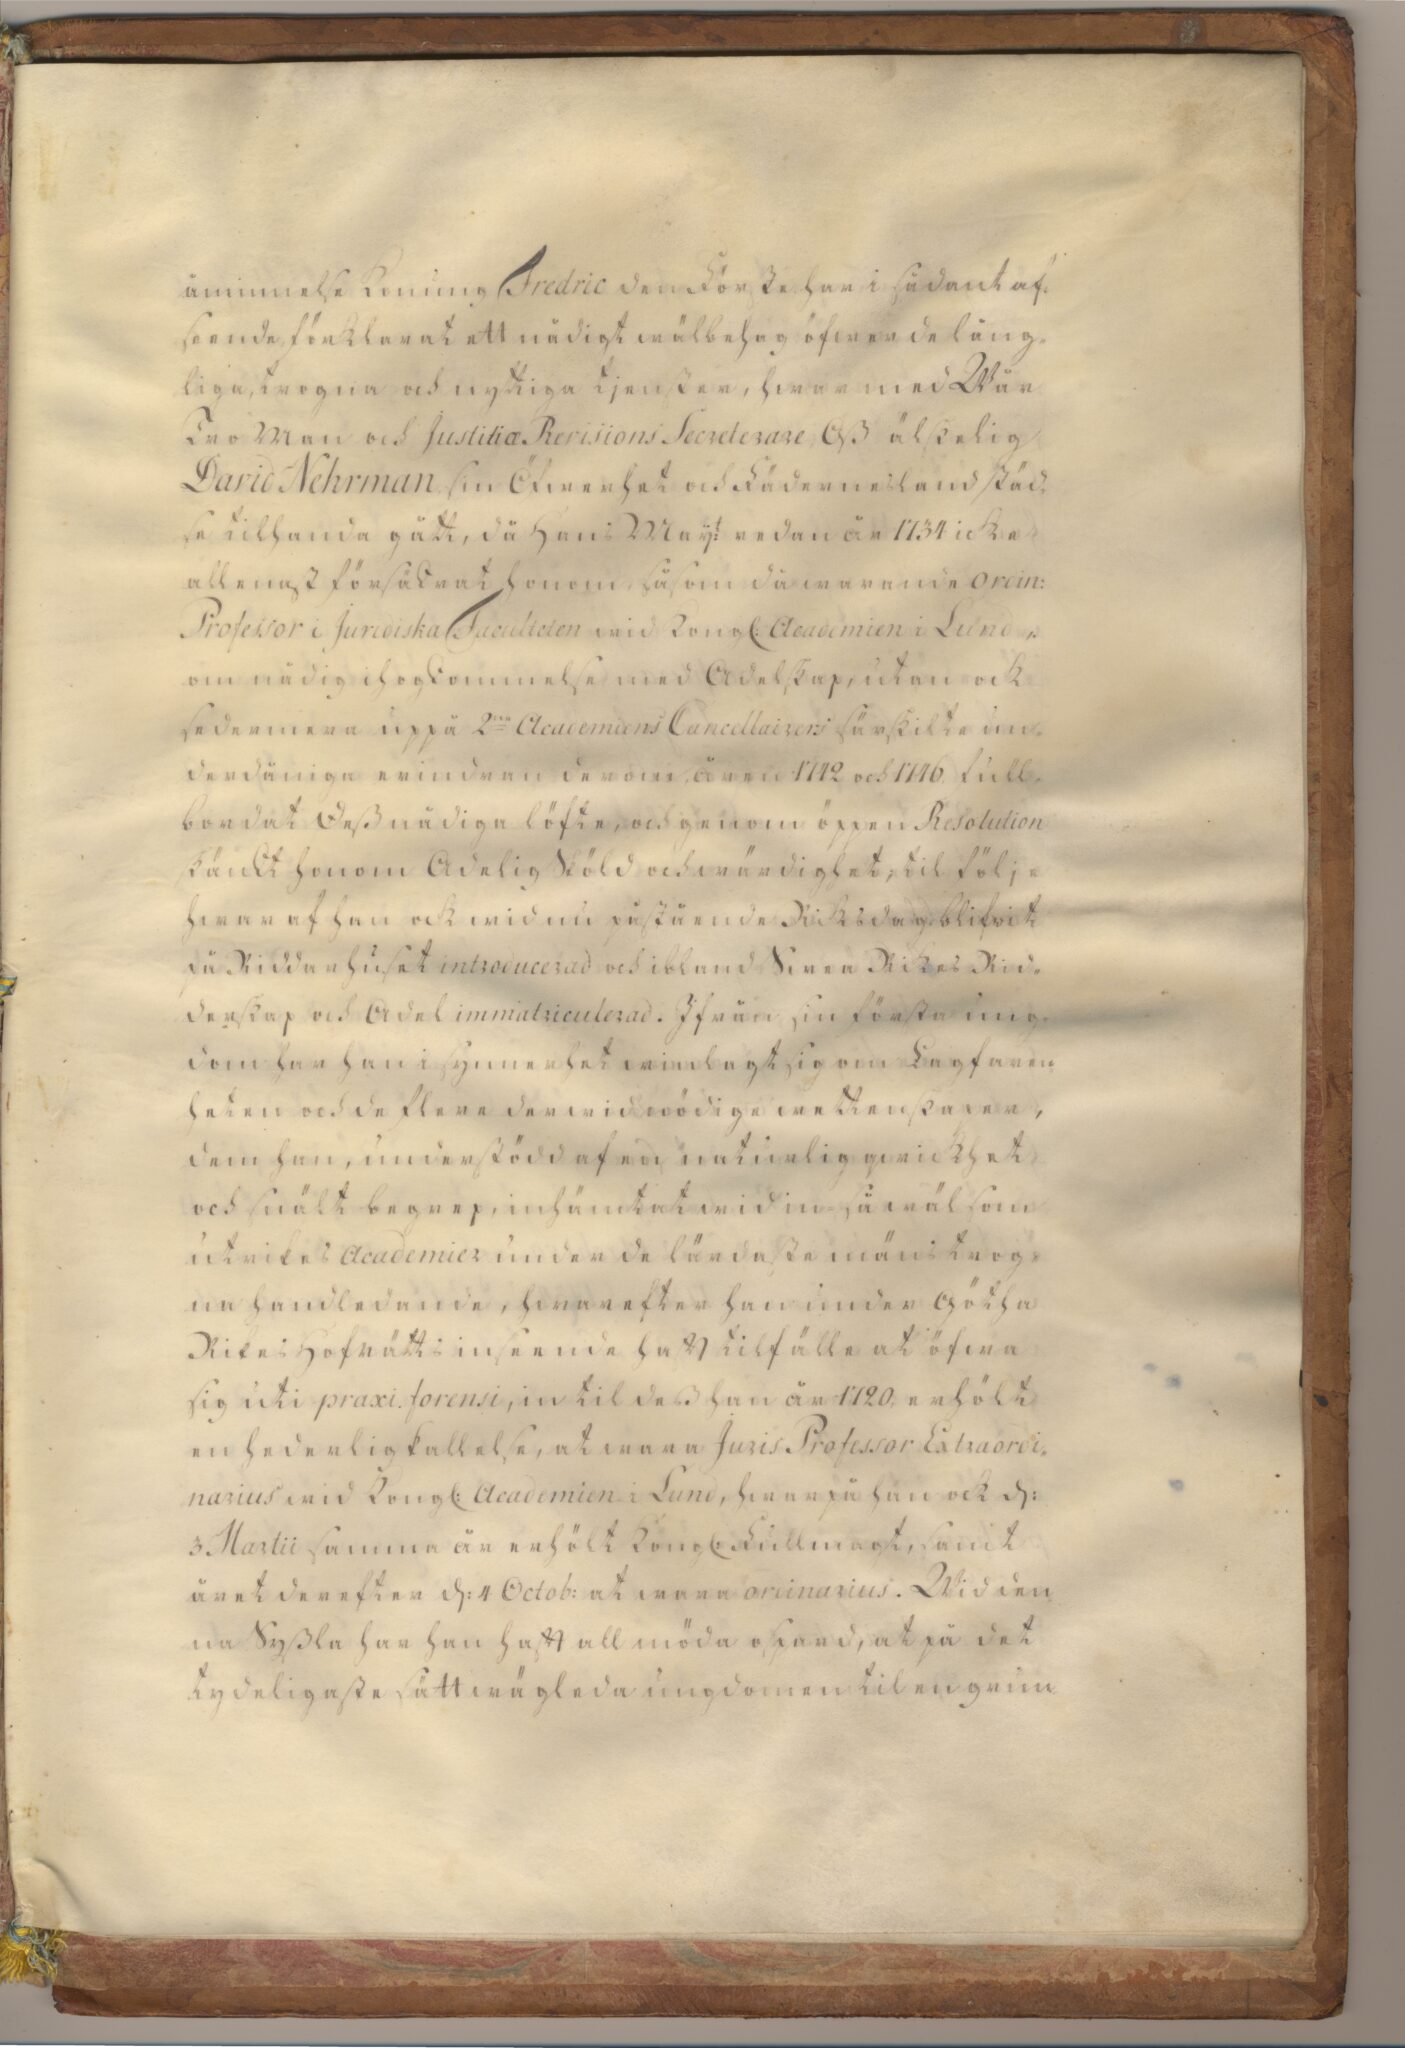 åminnelse Konung Fredric den Förste har i sådant af-
seende förklarat ett nådigt wälbehag öfwer de lång-
liga, trogna och nyttiga tjenster, hwarmed Wår
Tro Man och Justitiæ Revisions Secreterare, Oß älskelig
David Nehrman sin Öfwerhet och Fädernesland städ-
se tilhanda gått, då Hans Mayt: redan år 1734 icke
allenast försäkrat honom, såsom då warande ordin:
Professor i Juridiska Faculteten wid Kongl: Academien i Lund,
om nådig ihogkommelse med Adelskap, utan ock
sedermera uppå 2ne Academiens Cancellairers särskilte un-
derdåniga erindran derom, åren 1742 och 1746 full-
bordat Deß nådiga löfte, och genom öppen Resolution
skänkt honom Adelig Sköld och wärdighet, til följe
hwaraf han ock wid nu påstående Riksdag blifwit
på Riddarhuset introducerad och ibland Swea Rikes Rid-
derskap och Adel immatriculerad. Ifrån sin första ung-
dom har han i synnerhet winlagt sig om Lagfaren
heten och de flere derwid nödige wettenskaper,
dem han, understödd af en naturlig qwickhet
och snält begrep, inhämtat wid in- så wäl som
utrikes Academier under de lärdaste mäns trog-
na handledande, hwarefter han under Götha
Rikes Hofrätts inseende haft tilfälle at öfwa
sig uti praxi forensi, in til deß han år 1720 erhölt
en hederlig kallelse, at wara Juris Professor Extraordi-
narius wid Kongl: Academien i Lund, hwarpå han ock d:
3 Martii samma år erhölt Kongl: Fullmagt, samt
året derefter d: 4 Octob: at wara ordinarius. Wid den
na Syßla har han haft all möda ospard, at på det
tydeligaste sätt wägleda ungdomen til en grun